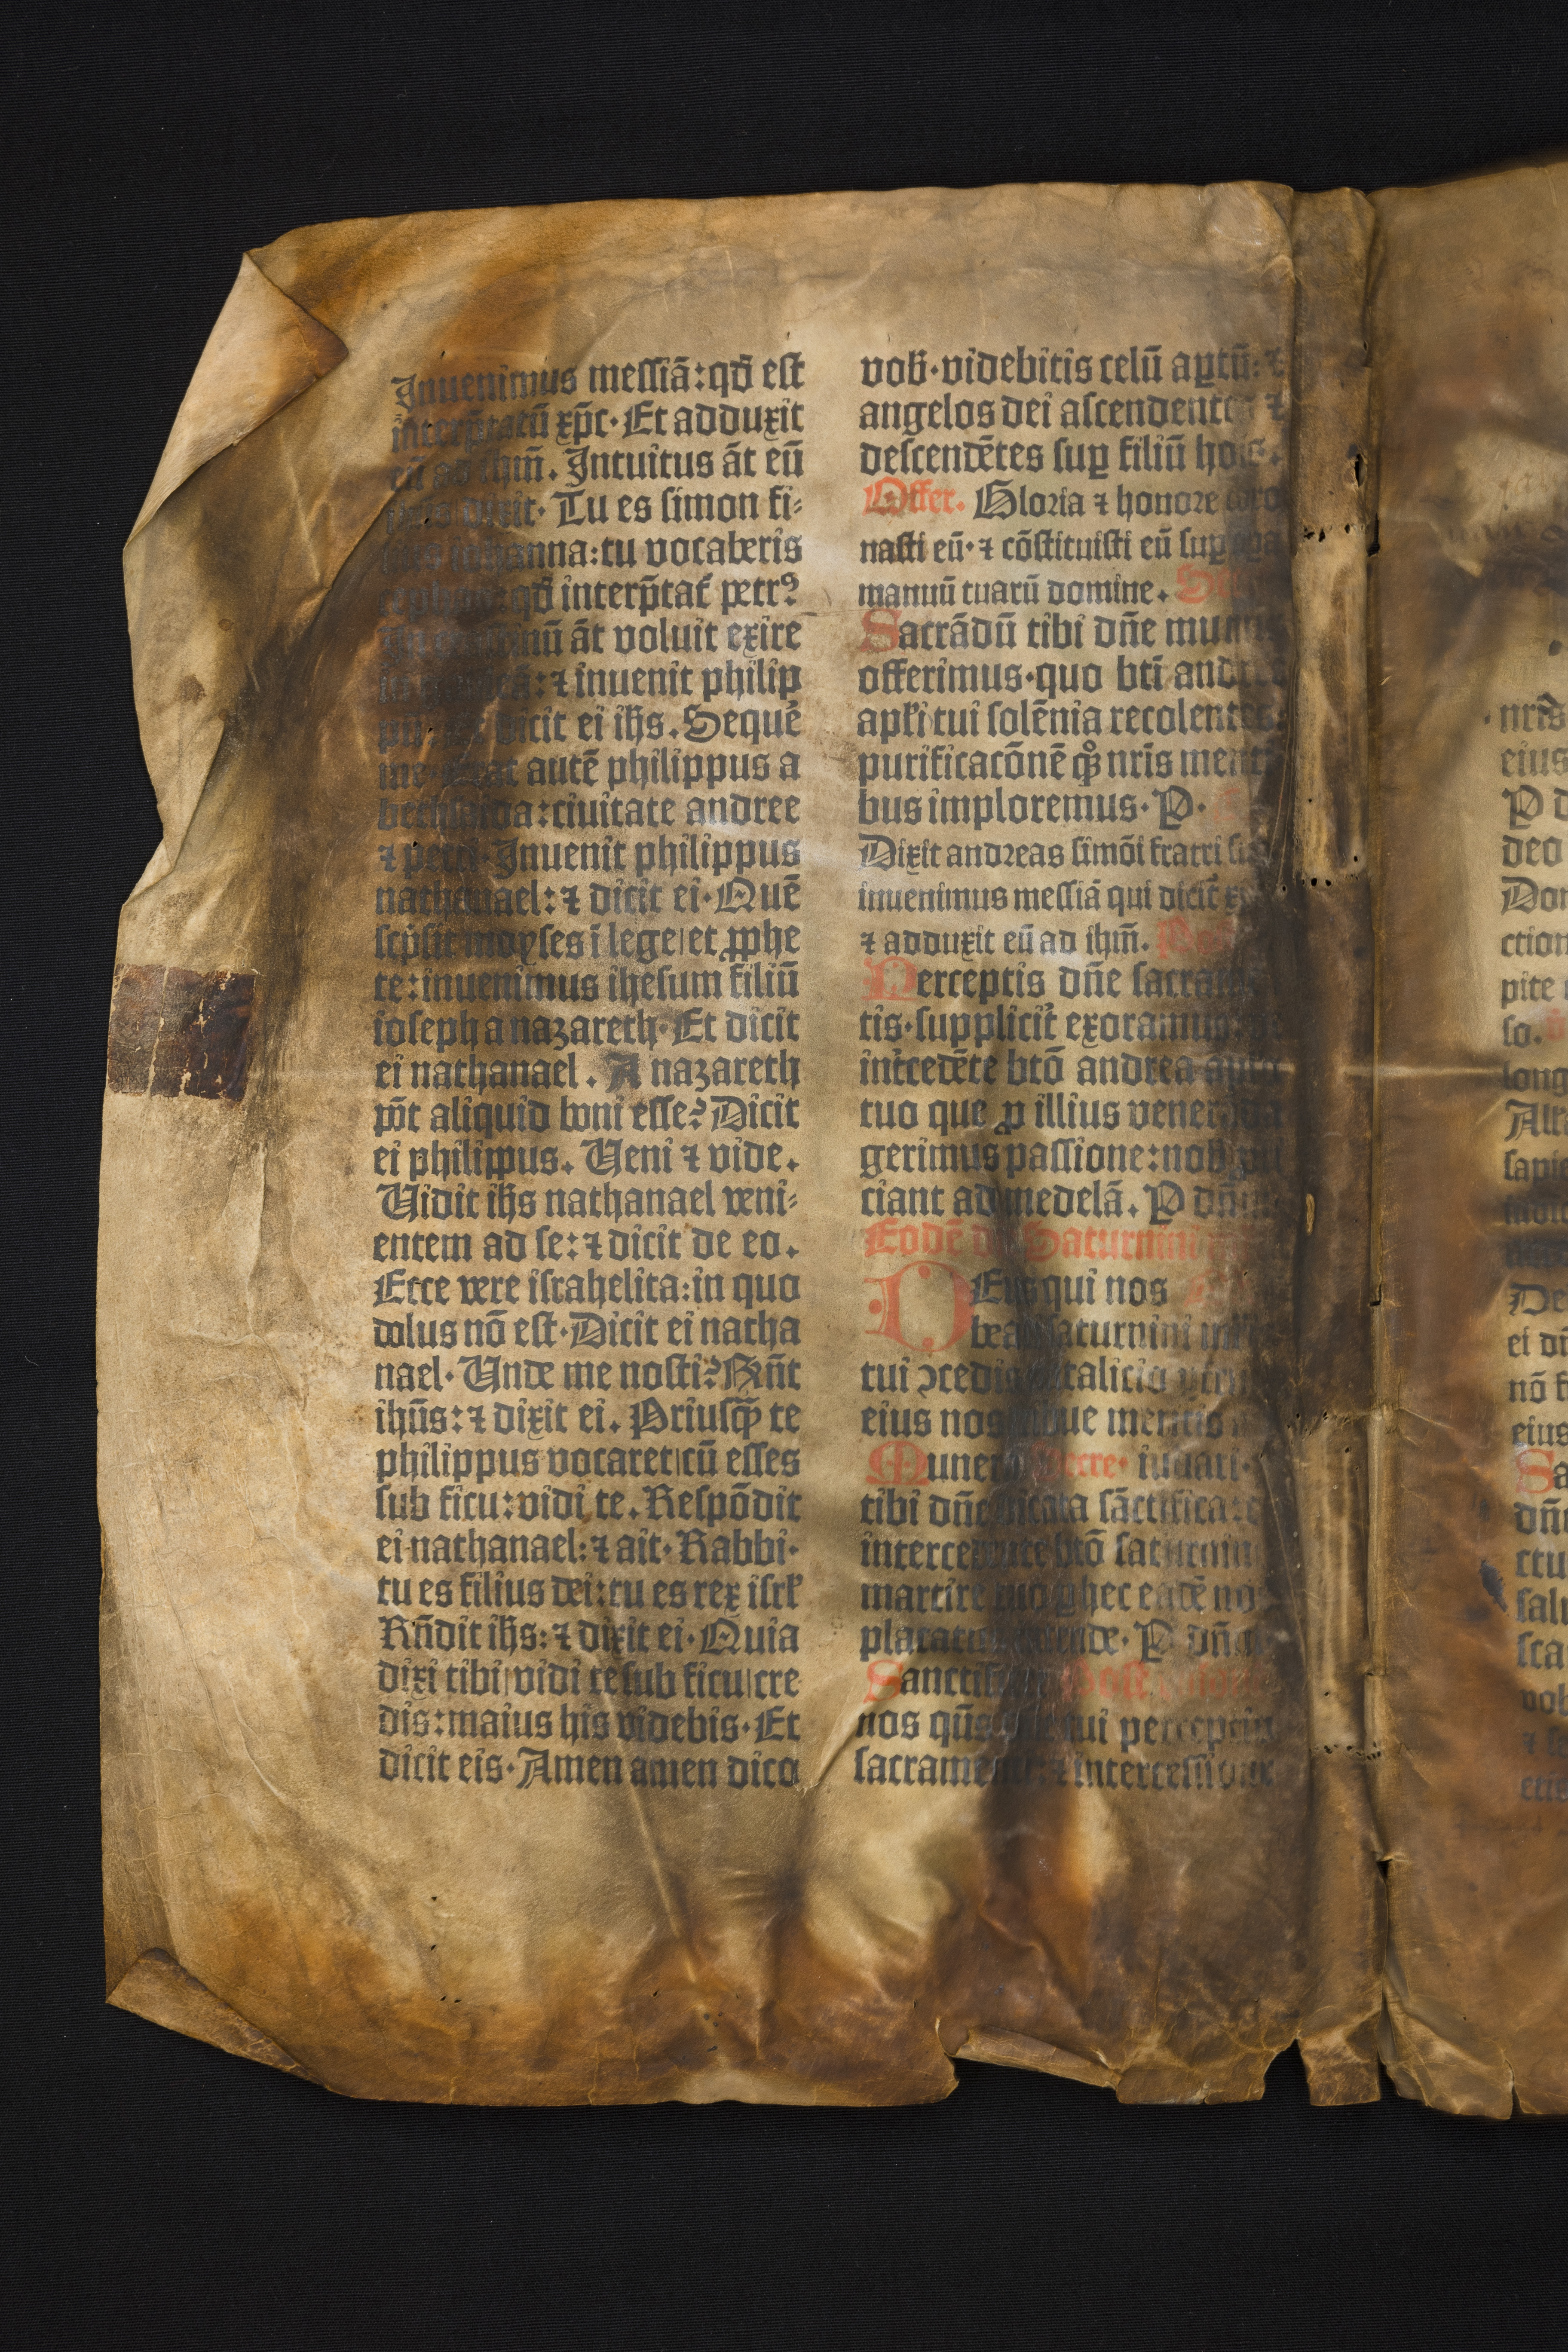 Inuenimus messiā: qđ est
interp̄tatū xp̄c· Et adduxit
eū ad ihm̄. Intuitus āt eū
dixit· Tu es simon fi⸗
iohanna: tu vocaberis
cephas: qđ interp̄tat᷑ petrꝰ
āt voluit exire
ī galileā: ⁊ inuenit philip
pū: ⁊ dicit ei ihs. Sequē
me· erat autē philippus a
bethsaida: ciuitate andree
⁊ petri· Inuenit philippus
nathanael: ⁊ dicit ei· Quē
scp̄sit moyses ī lege| et ꝓphe
te: inuenimus ihesum filiū
ioseph a nazareth· Et dicit
ei nathanael. A nazareth
pōt aliquid boni esse? Dicit
ei philippus. Ueni ⁊ vide.
Uidit ihs nathanael veni⸗
entem ad se: ⁊ dicit de eo.
Ecce vere israhelita: in quo
dolus nō est· Dicit ei natha
nael· Unde me nosti? Rn̄t
ihūs: ⁊ dixit ei. Priusꝙ̄ te
philippus vocaret| cū esses
sub ficu: vidi te. Respōdit
ei nathanael: ⁊ ait· Rabbi·
tu es filius dei: tu es rex isrl̄
Rn̄dit ihs: ⁊ dixit ei· Quia
dixi tibi| vidi te sub ficu| cre
dis: maius his videbis· Et
dicit eis· Amen amen dico
vob̄· videbitis celū aꝑtū: ⁊
angelos dei ascendentes ⁊
descendētes suꝑ filiū hoīs.
Offer. Gloria ⁊ honore coro
nasti eū· ⁊ cōstituisti eū suꝑ oꝑa
manuū tuarū domine. Secr
Sacrādū tibi dn̄e munus
offerimus· quo bt̄i andree
apl̄i tui solēnia recolentes
purificacōnē qͦꝫ nr̄is menti
bus imploremus· P·
Dixit andreas simōi fratri suo
inuenimus messiā qui dicit᷑ xp̄c
⁊ adduxit eū ad ihm̄. Post
Perceptis dn̄e sacramē
tis· suppliciṫ exoramus: vt
int̄cedēte bt̄o andrea apl̄o
tuo que ꝓ illius veneranda
gerimus passione: nob̄ ꝓfi
ciant ad medelā. P dn̄m
Eodē die Saturnini
DEus qui nos
beati saturnini mris
tui ↄcedis natalicio ꝑfrui
eius nos tribue meritis
Munera Secre· iuuari·
tibi dn̄e dicata sāctifica: ⁊
intercedente bt̄o saturnino
martire tuo ꝑ hec eadē nos
placatus intende· P dn̄m
Sanctifi Post cōmu
nos qs̄ dn̄e tui perceptio
sacramenti: ⁊ intercessione
nr̄is
eius
P
deo
Don
ction
pite
so.
long
Alla
sapie
De
ei
nō
eius
Sa
dn̄
ctu
salu
sca
vob